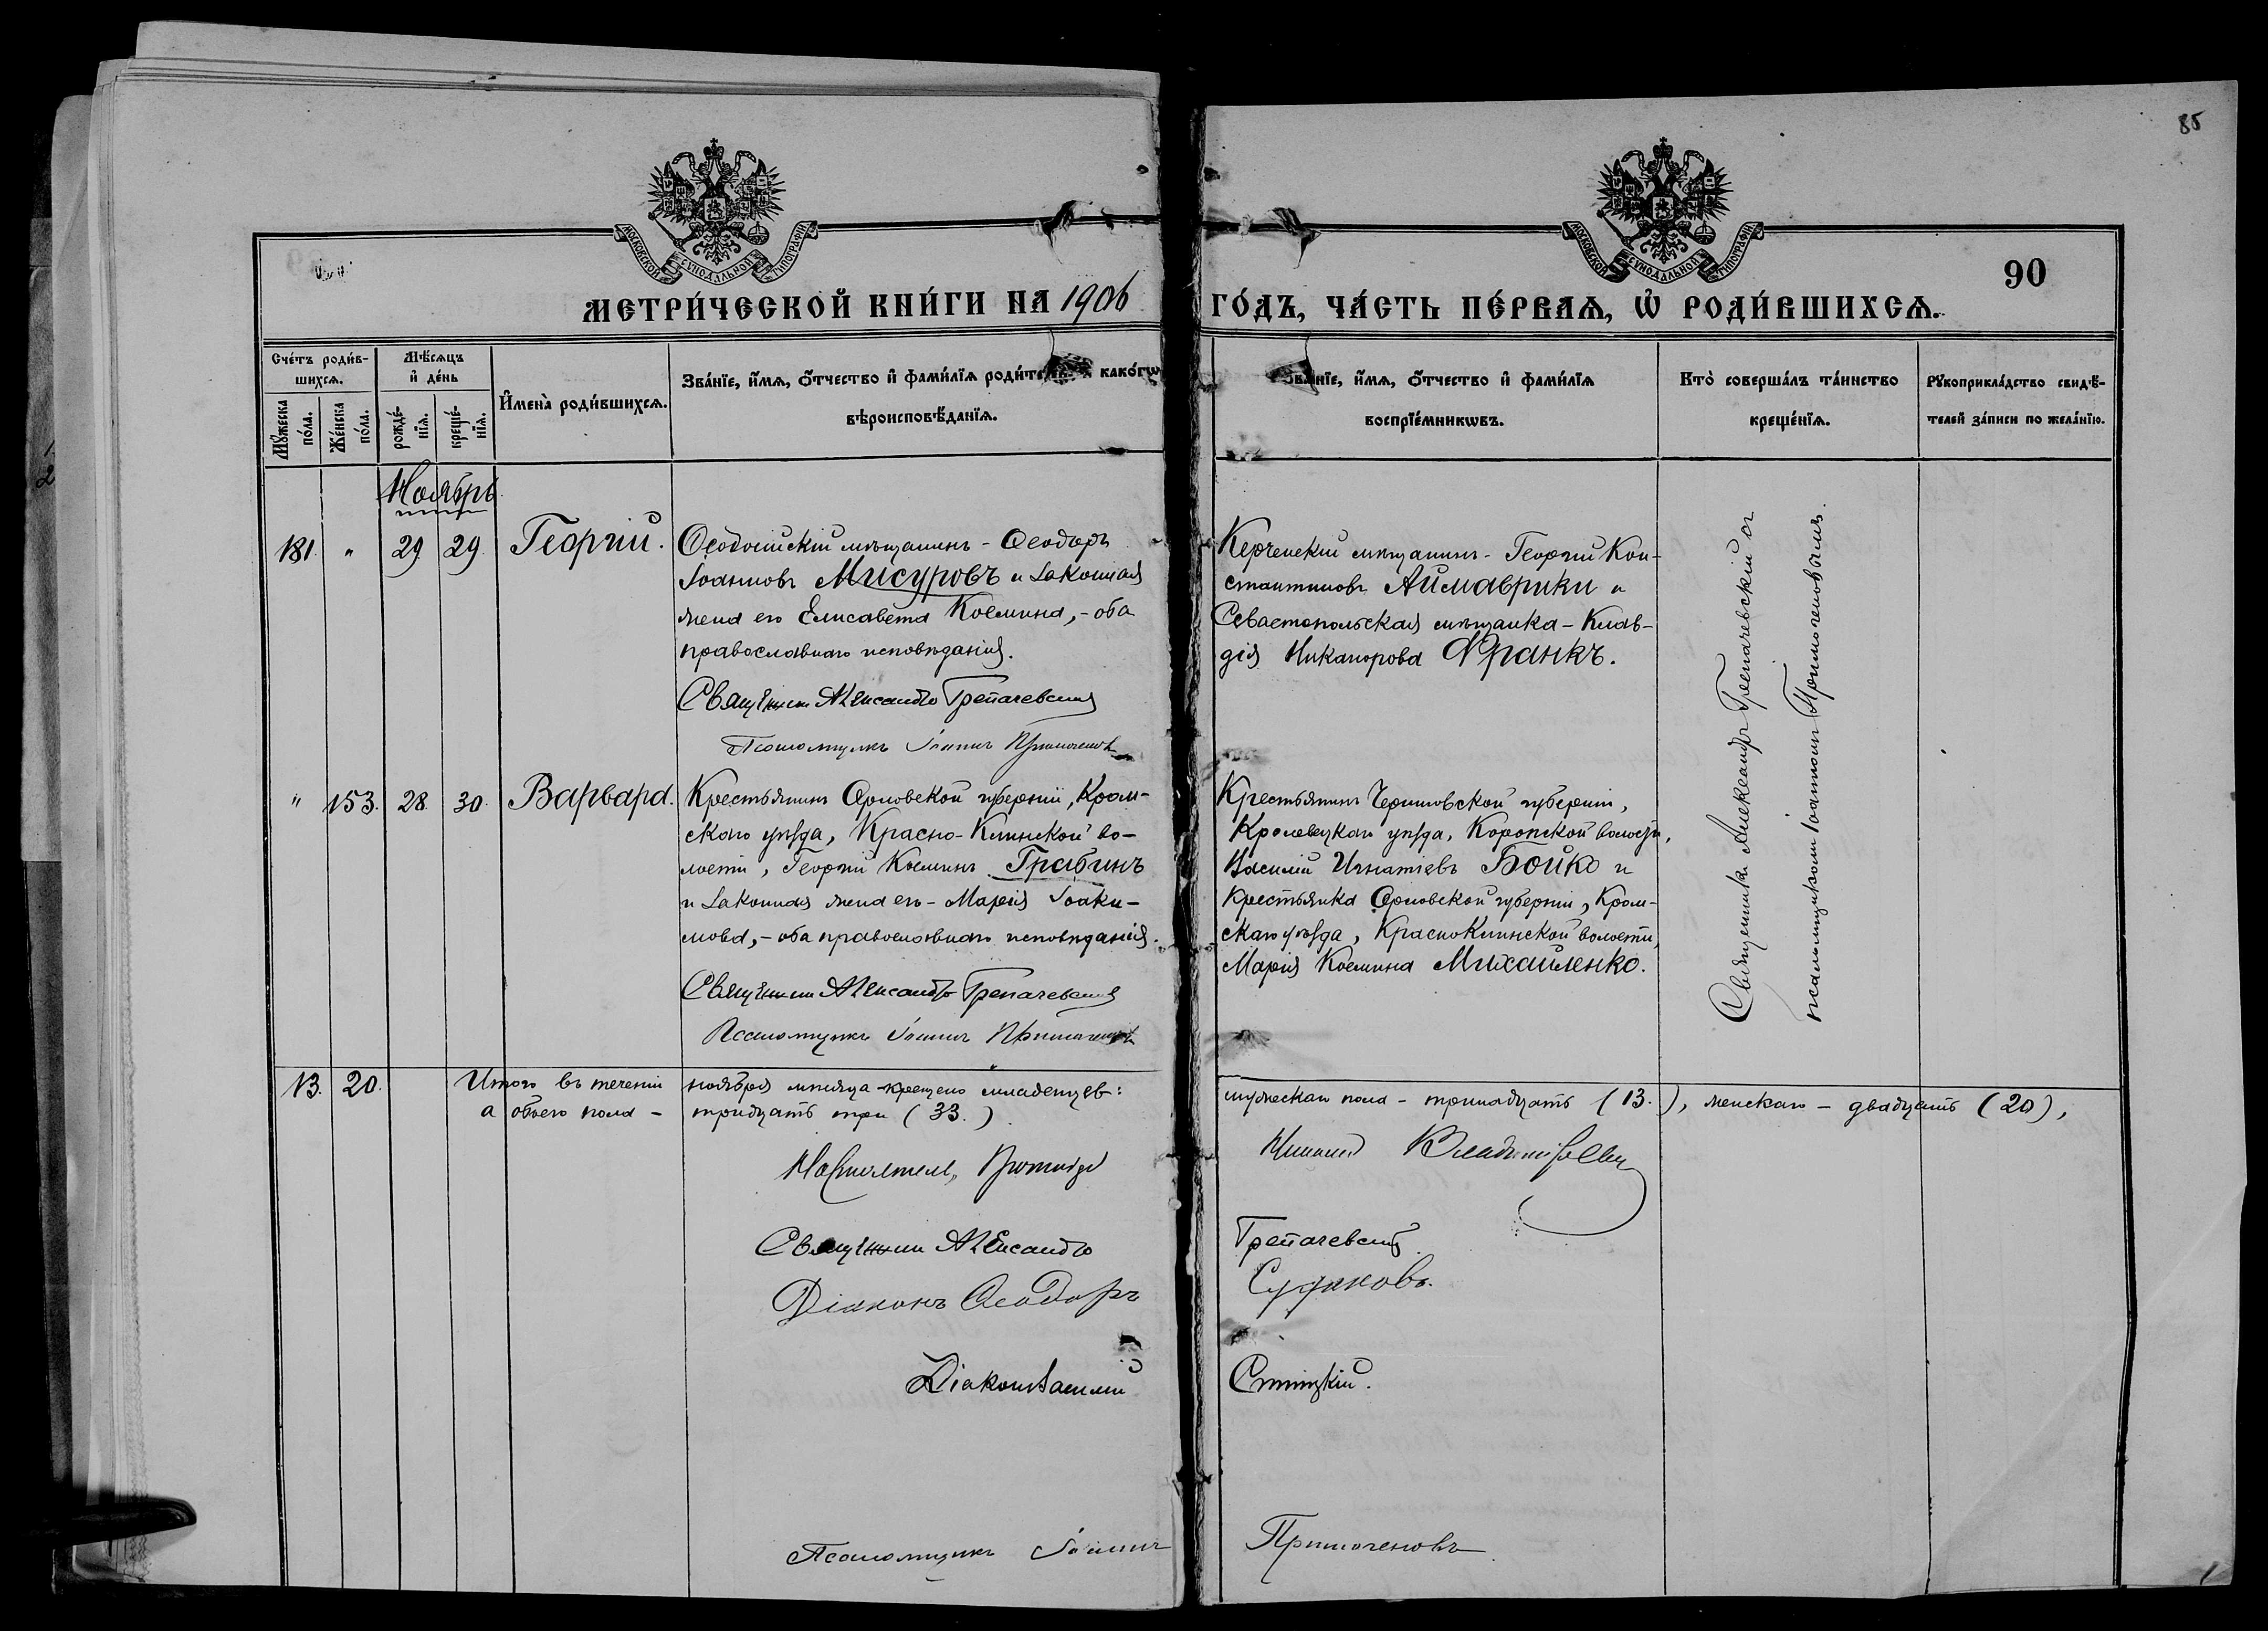 85
МОСКОВСКОЙ СѴНОДАЛЬНОЙ ТИПОГРАФІИ
МОСКОВСКОЙ СѴНОДАЛЬНОЙ ТИПОГРАФІИ
90
МЕТРИ́ЧЕСКОЙ КНИ́ГИ НА 1906
ГО́ДЪ, ЧА́СТЬ ПЕ́РВАѦ, Ѡ҆ РОДИ́ВШИХСѦ.
Сче́тъ роди́в-
шихсѧ.
Мѣ́сѧцъ
и҆ де́нь
Мꙋ́жеска
по́ла.
Же́нска
по́ла.
рожде́-
нїѧ.
креще́-
нїѧ.
И҆мена̀ роди́вшихсѧ.
Зва́нїе, и҆́мѧ, ѻ҆́тчество и҆ фами́лїѧ како́гѡ
вѣроисповѣ́данїѧ.
Зва́нїе, и҆́мѧ, ѻ҆́тчество и҆ фами́лїѧ
воспрїе́мникѡвъ.
Кто̀ соверша́лъ та́инство
креще́нїѧ.
Рꙋкоприкла́дство свидѣ́-
телей за́писи по жела́нїю.
Ноябрь
181. " 29 29. Георгій.
Ѳеодосійскій мѣщанинъ - Ѳеодоръ
Іоанновъ Мисуровъ и законная
жена его Елисавета Космина, - оба
православнаго исповѣданія.
Священникъ Александръ Трепачевскій
Псаломщикъ Іоаннъ Примогеновъ
Керченскій мѣщанинъ - Георгій Кон-
стантиновъ Аймаврики и
Севастопольская мѣщанка - Клав-
дія Никанорова Франкъ.
Священникъ Александръ Трепачевскій съ
псаломщикомъ Іоанномъ Примогеновымъ.
" 153. 28. 30. Варвара.
Крестьянинъ Орловской губерніи, Кром-
скаго уѣзда, Красно-Клинской во-
лости, Георгій Косминъ Грабинъ
и законная жена его - Марія Іоаки-
мова, - оба православнаго исповѣданія.
Священникъ Александръ Трепачевскій
Псаломщикъ Іоаннъ Примогеновъ
Крестьянинъ Черниговской губерніи,
Кролевецкаго уѣзда, Коропской волости,
Василій Игнатіевъ Бойко и
крестьянка Орловской губерніи, Кром-
скаго уѣзда, КрасноКлинской волости,
Марія Космина Михайленко.
13. 20. Итого въ теченіи ноября мѣсяца крещено младенцевъ: мужескаго пола - тринадцать (13.), женскаго - двадцать (20),
а обоего пола - тридцать три (33.)
Настоятель, Владимі
Священникъ Александръ Трепачевскій.
Діаконъ Ѳеодоръ Судаковъ.
Діаконъ Василій
Псаломщикъ Іоаннъ Примогеновъ